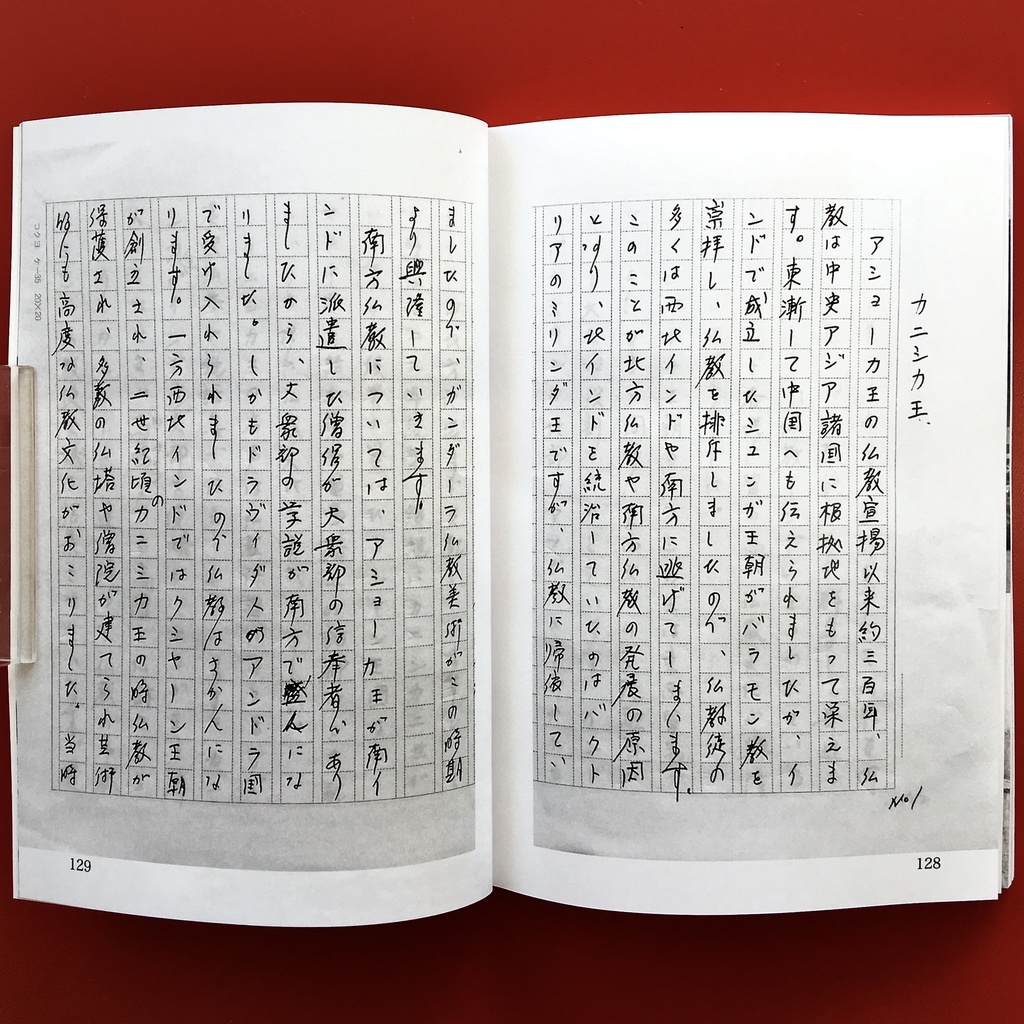 カニシカ王、
アショーカ王の仏教宣揚以来約三百年、仏
教は中央アジア諸国に根拠地をもって栄えま
す。東漸して中国へも伝えられましたが、イ
ンドで成立したシュンガ王朝がバラモン教を
崇拝し、仏教を排斥しましたので、仏教徒の
多くは西北インドや南方に逃げてしまいます。
このことが北方仏教や南方仏教の発展の原因
となり、北インドを統治していたのはバクト
リアのミリンダ王ですが、仏教に帰依してい
No1
128
ましたので、ガンダーラ仏教美術がこの時期
より興隆していきます。
南方仏教については、アショーカ王が南イ
ンドに派遣した僧侶が大衆部の信奉者であり
ましたから、大衆部の学説が南方で盛んにな
りました。しかもドラヴィダ人のアンドラ国
で受け入れられましたので仏教はさかんにな
ります。一方西北インドではクシャーン王朝
が創立され、二世紀頃のカニシカ王の時仏教が
保護され、多数の仏塔や僧院が建てられ芸術
的にも高度な仏教文化がおこりました。当時
コクヨ ケ-35 20×20
129